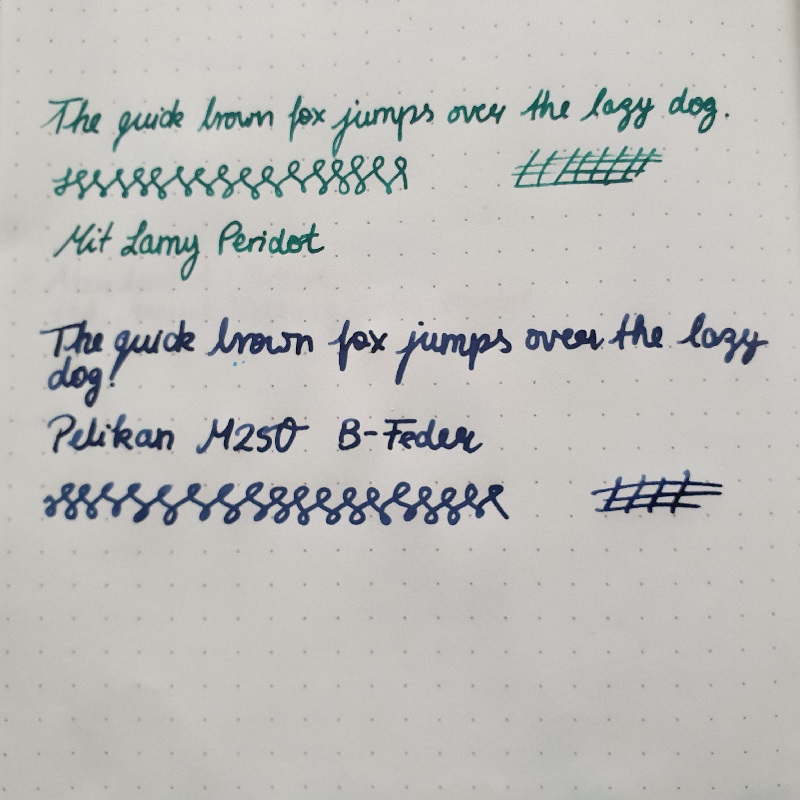 The quick brown fox jumps over the lazy dog.
Mit Lamy Peridot
The quick brown fox jumps over the lazy
dog!
Pelikan M250 B-Feder